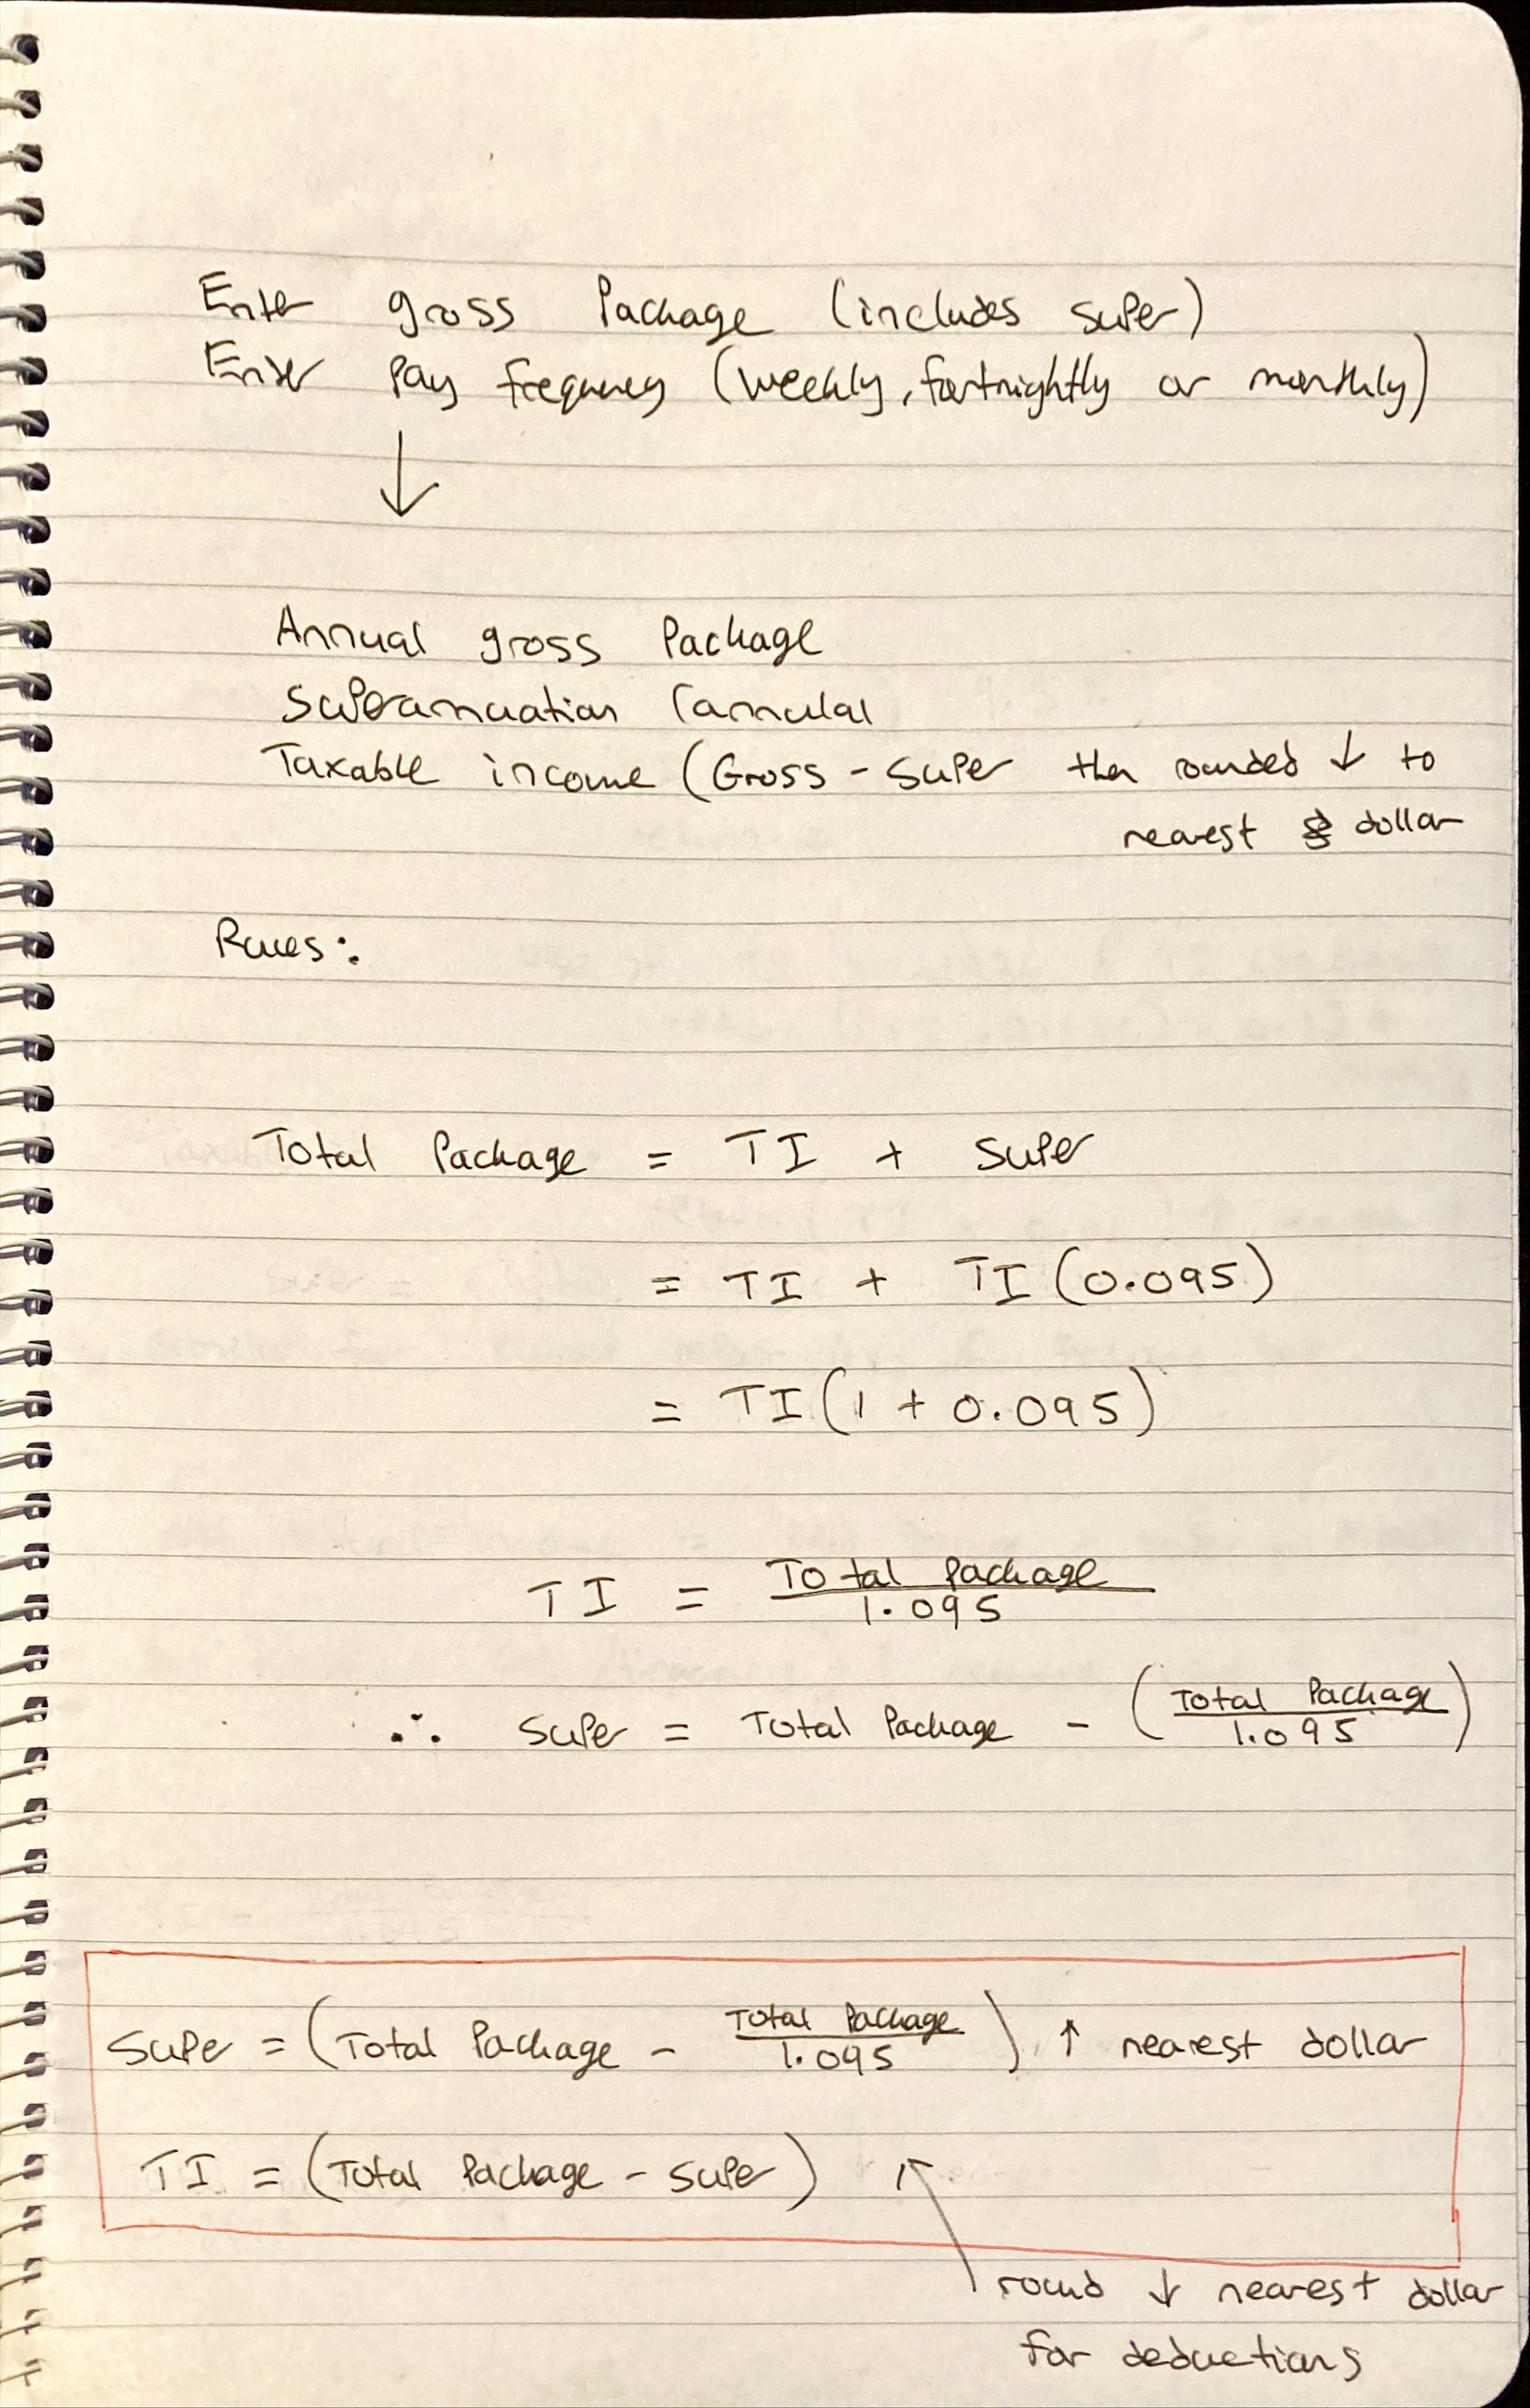 Enter gross Package (includes super)
Enter Pay frequency (weekly, fortnightly or monthly)
↓
Annual gross Package
Superannuation (annual
Taxable income (Gross - Super then rounded ↓ to
nearest dollar
Rules:
Total Package = TI + Super
= TI + TI (0.095)
= TI (1 + 0.095)
TI = Total Package / 1.095
∴ Super = Total Package - (Total Package / 1.095)
Super = (Total Package - Total Package / 1.095) ↑ nearest dollar
TI = (Total Package - Super)
round ↓ nearest dollar
for deductions